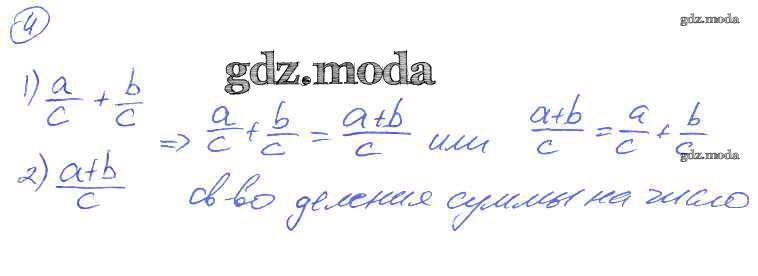 4
gdz.moda
gdz.moda
1) a/c + b/c
⇒ a/c + b/c = a+b/c или a+b/c = a/c + b/c
gdz.moda
2) a+b/c
св-во деления суммы на число